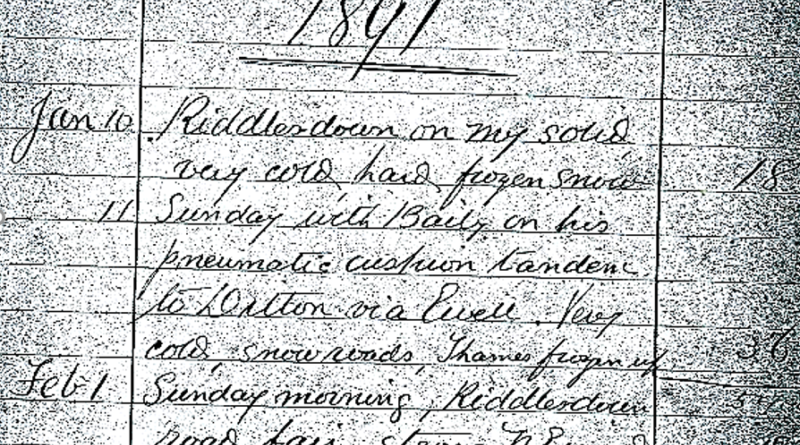 1891
Jan 10 Riddlesdown on my solid
very cold, hard frozen snow 18
11 Sunday with Baily on his
pneumatic cushion tandem
to Ditton via Ewell. Very
cold, snow roads, Thames frozen up 36
Feb 1 Sunday morning, Riddlesdown
road fair, strong N.E.